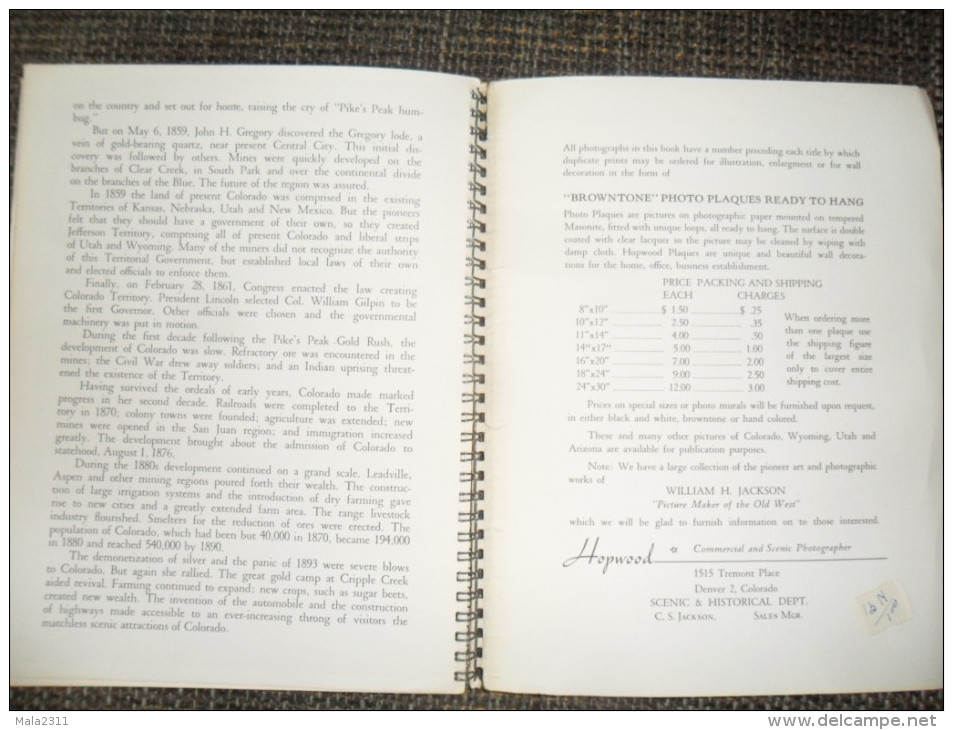 on the country and set out for home, raising the cry of "Pike's Peak hum-
bug."
But on May 6, 1859, John H. Gregory discovered the Gregory lode, a
vein of gold-bearing quartz, near present Central City. This initial dis-
covery was followed by others. Mines were quickly developed on the
branches of Clear Creek, in South Park and over the continental divide
on the branches of the Blue. The future of the region was assured.
In 1859 the land of present Colorado was comprised in the existing
Territories of Kansas, Nebraska, Utah and New Mexico. But the pioneers
felt that they should have a government of their own, so they created
Jefferson Territory, comprising all of present Colorado and liberal strips
of Utah and Wyoming. Many of the miners did not recognize the authority
of this Territorial Government, but established local laws of their own
and elected officials to enforce them.
Finally, on February 28, 1861, Congress enacted the law creating
Colorado Territory. President Lincoln selected Col. William Gilpin to be
the first Governor. Other officials were chosen and the governmental
machinery was put in motion.
During the first decade following the Pike's Peak Gold Rush, the
development of Colorado was slow. Refractory ore was encountered in the
mines; the Civil War drew away soldiers; and an Indian uprising threat-
ened the existence of the Territory.
Having survived the ordeals of early years, Colorado made marked
progress in her second decade. Railroads were completed to the Terri-
tory in 1870; colony towns were founded; agriculture was extended; new
mines were opened in the San Juan region; and immigration increased
greatly. The development brought about the admission of Colorado to
statehood, August 1, 1876.
During the 1880s development continued on a grand scale. Leadville,
Aspen and other mining regions poured forth their wealth. The construc-
tion of large irrigation systems and the introduction of dry farming gave
rise to new cities and a greatly extended farm area. The range livestock
industry flourished. Smelters for the reduction of ores were erected. The
population of Colorado, which had been but 40,000 in 1870, became 194,000
in 1880 and reached 540,000 by 1890.
The demonetization of silver and the panic of 1893 were severe blows
to Colorado. But again she rallied. The great gold camp at Cripple Creek
aided revival. Farming continued to expand; new crops, such as sugar beets,
created new wealth. The invention of the automobile and the construction
of highways made accessible to an ever-increasing throng of visitors the
matchless scenic attractions of Colorado.
All photographs in this book have a number preceding each title by which
duplicate prints may be ordered for illustration, enlargment or for wall
decoration in the form of
"BROWNTONE" PHOTO PLAQUES READY TO HANG
Photo Plaques are pictures on photographic paper mounted on tempered
Masonite, fitted with unique loops, all ready to hang. The surface is double
coated with clear lacquer so the picture may be cleaned by wiping with
damp cloth. Hopwood Plaques are unique and beautiful wall decora-
tions for the home, office, business establishment.
PRICE PACKING AND SHIPPING
EACH CHARGES
8"x10" $ 1.50 $ .25
10"x12" 2.50 .35
11"x14" 4.00 .50
14"x17" 5.00 1.00
16"x20" 7.00 2.00
18"x24" 9.00 2.50
24"x30" 12.00 3.00
When ordering more
than one plaque use
the shipping figure
of the largest size
only to cover entire
shipping cost.
Prices on special sizes or photo murals will be furnished upon request,
in either black and white, browntone or hand colored.
These and many other pictures of Colorado, Wyoming, Utah and
Arizona are available for publication purposes.
Note: We have a large collection of the pioneer art and photographic
works of
WILLIAM H. JACKSON
"Picture Maker of the Old West"
which we will be glad to furnish information on to those interested.
Hopwood Commercial and Scenic Photographer
1515 Tremont Place
Denver 2, Colorado
SCENIC & HISTORICAL DEPT.
C. S. JACKSON, SALES MGR.
Mala2311
www.delcampe.net